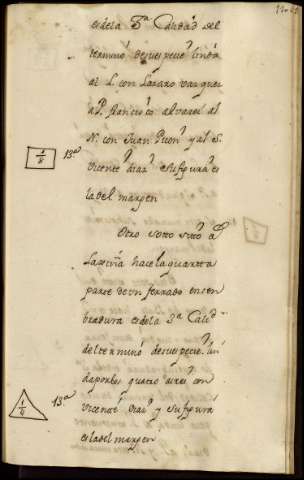 es de la 3ª Calidad del
termino desuespecie linda
al L. con Lazaro Vazquez
a P. francisco alvarez al
N. con Juan y al S.
Vicente Diaz Sufigura es
la del margen
13ª
Otro soto sito a
Lapereira hace la quarta
parte de un ferrado en sem
bradura es de la 3ª Calid
del termino desuespecie lin
da por los quatro aires con
Vicente Diaz y Sufigura
es la del margen
13ª